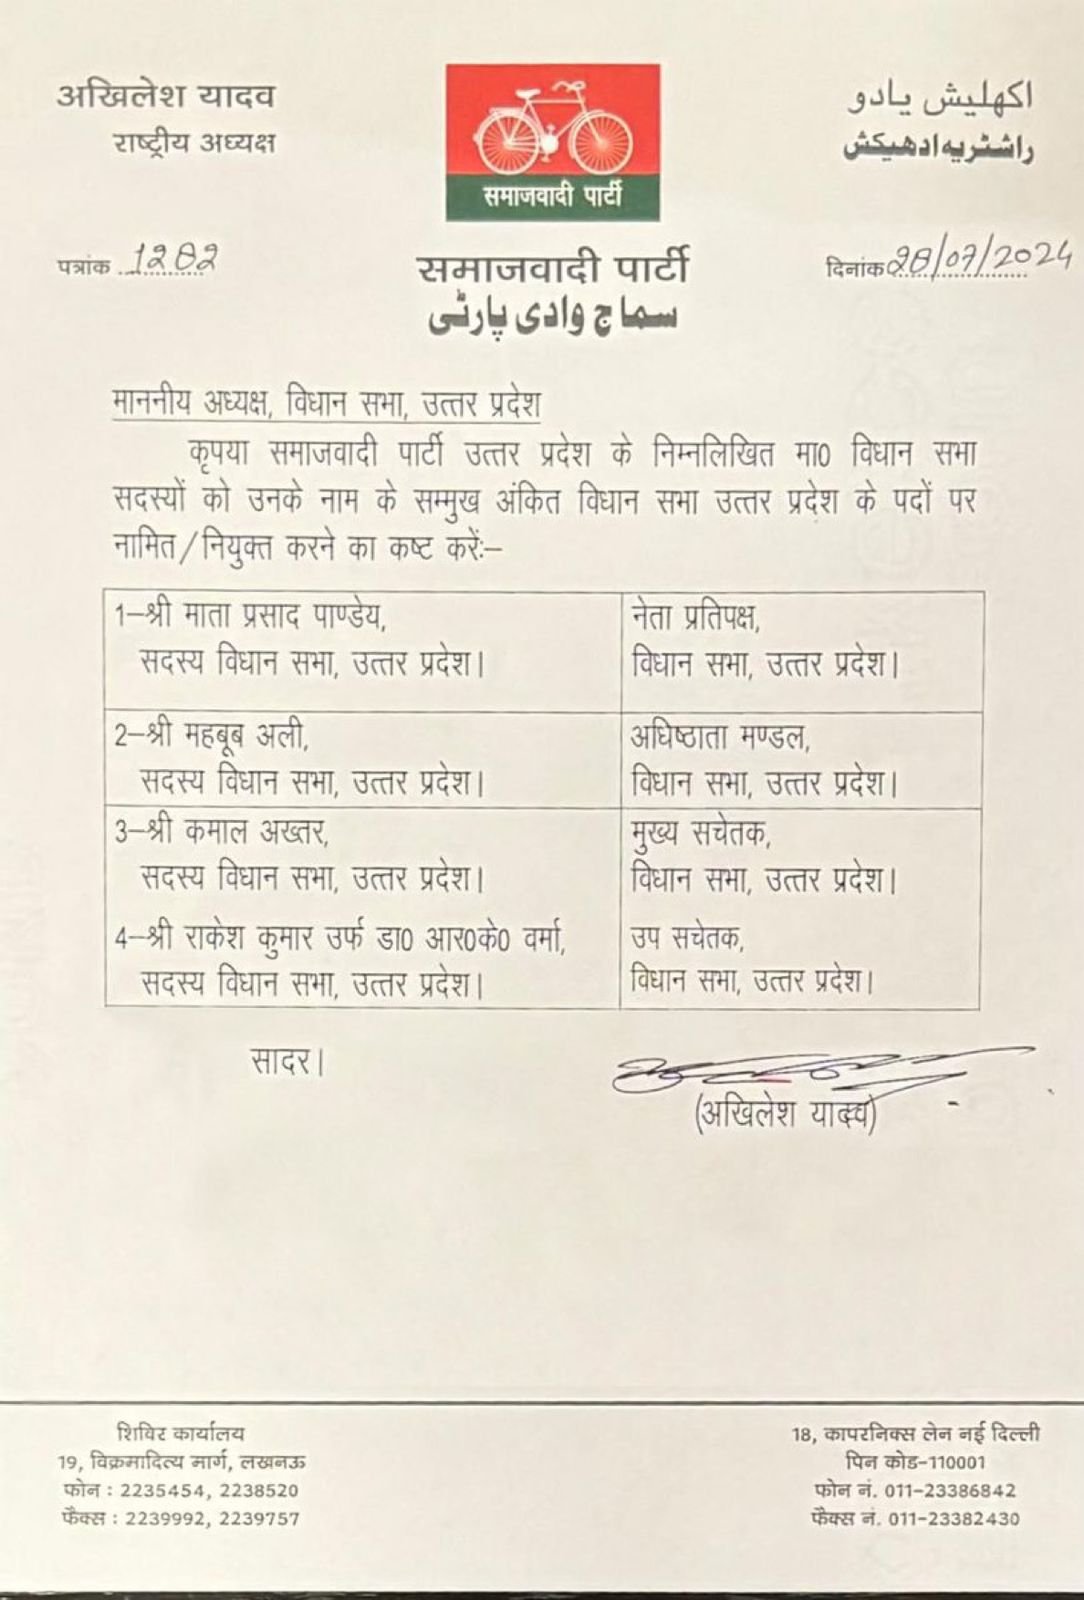 अखिलेश यादव
राष्ट्रीय अध्यक्ष
समाजवादी पार्टी
اکھلیش یادو
راشٹریہ ادھیکش
पत्रांक 1282
समाजवादी पार्टी
سماج وادی پارٹی
दिनांक 28/07/2024
माननीय अध्यक्ष, विधान सभा, उत्तर प्रदेश
कृपया समाजवादी पार्टी उत्तर प्रदेश के निम्नलिखित मा0 विधान सभा
सदस्यों को उनके नाम के सम्मुख अंकित विधान सभा उत्तर प्रदेश के पदों पर
नामित/नियुक्त करने का कष्ट करें:–
1–श्री माता प्रसाद पाण्डेय,
सदस्य विधान सभा, उत्तर प्रदेश।
नेता प्रतिपक्ष,
विधान सभा, उत्तर प्रदेश।
2–श्री महबूब अली,
सदस्य विधान सभा, उत्तर प्रदेश।
अधिष्ठाता मण्डल,
विधान सभा, उत्तर प्रदेश।
3–श्री कमाल अख्तर,
सदस्य विधान सभा, उत्तर प्रदेश।
मुख्य सचेतक,
विधान सभा, उत्तर प्रदेश।
4–श्री राकेश कुमार उर्फ डा0 आर0के0 वर्मा,
सदस्य विधान सभा, उत्तर प्रदेश।
उप सचेतक,
विधान सभा, उत्तर प्रदेश।
सादर।
(अखिलेश यादव)
शिविर कार्यालय
19, विक्रमादित्य मार्ग, लखनऊ
फोन : 2235454, 2238520
फैक्स : 2239992, 2239757
18, कापरनिक्स लेन नई दिल्ली
पिन कोड-110001
फोन नं. 011-23386842
फैक्स नं. 011-23382430